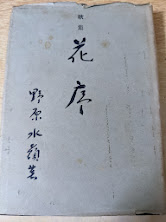 歌集
花序
野原水嶺著